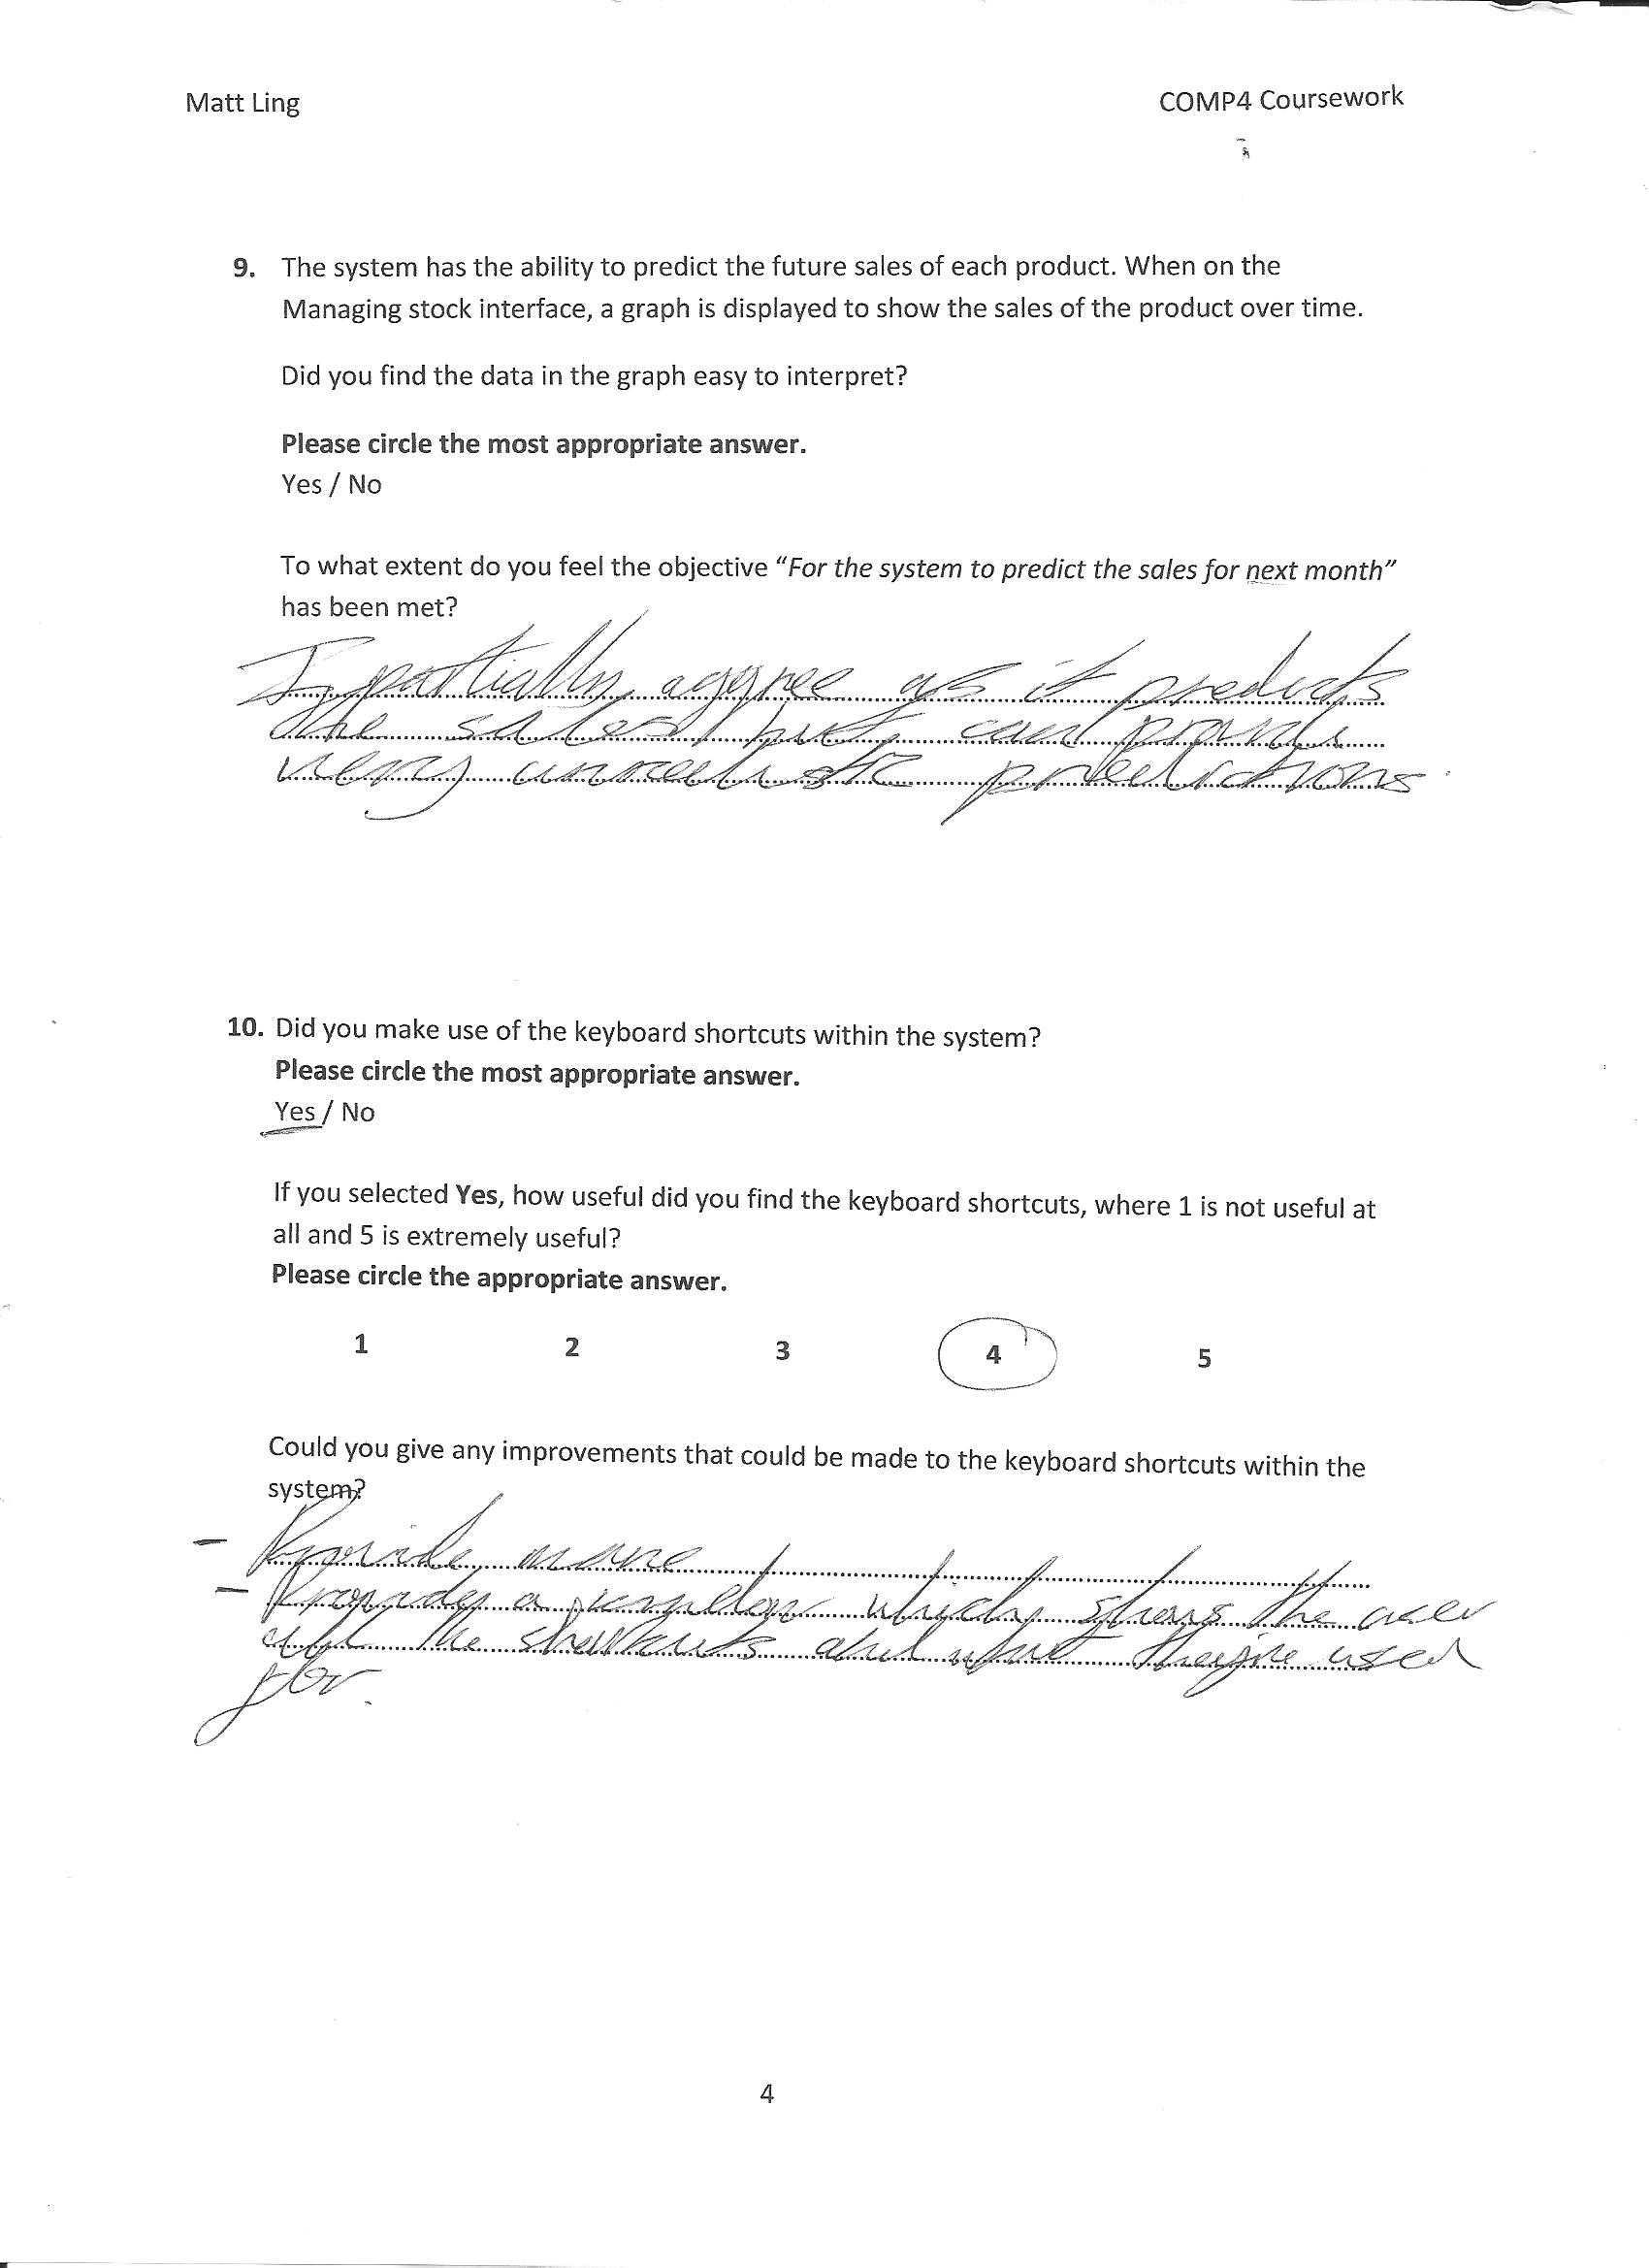 Matt Ling
COMP4 Coursework
9. The system has the ability to predict the future sales of each product. When on the
Managing stock interface, a graph is displayed to show the sales of the product over time.
Did you find the data in the graph easy to interpret?
Please circle the most appropriate answer.
Yes / No
To what extent do you feel the objective “For the system to predict the sales for next month”
has been met?
I partially aggree as it predicts
the sales but can provide
very unrealistic predictions
10. Did you make use of the keyboard shortcuts within the system?
Please circle the most appropriate answer.
Yes / No
If you selected Yes, how useful did you find the keyboard shortcuts, where 1 is not useful at
all and 5 is extremely useful?
Please circle the appropriate answer.
1 2 3 4 5
Could you give any improvements that could be made to the keyboard shortcuts within the
system?
- Provide more
- Provide a window which shows the user
all the shortcuts and what they're used
for.
4